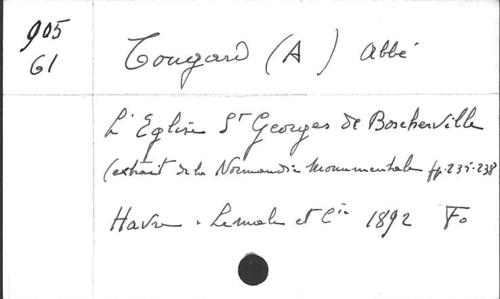 905
61
Tougard (A) Abbé
L'Eglise St Georges de Boscherville
(extrait de la Normandie Monumentale pp. 235-238
Havre. Lemale et Cie 1892 Fo